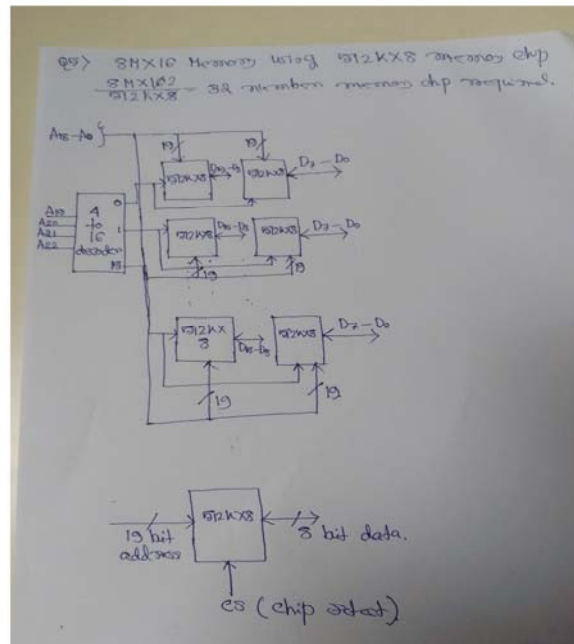 Q5> 8M×16 Memory using 512K×8 memory chip
8M×16 2
512K×8 = 32 number memory chp required.
A18-A0
19
19
512K×8
D15-8
512K×8
D7-D0
A19
A20
A21
A22
4
to
16
decoder
0
1
15
512K×8
D15-D8
512K×8
D7-D0
19
19
512K×
8
D15-D8
512K×8
D7-D0
19
19
512K×8
19 bit
address
8 bit data.
CS (chip select)